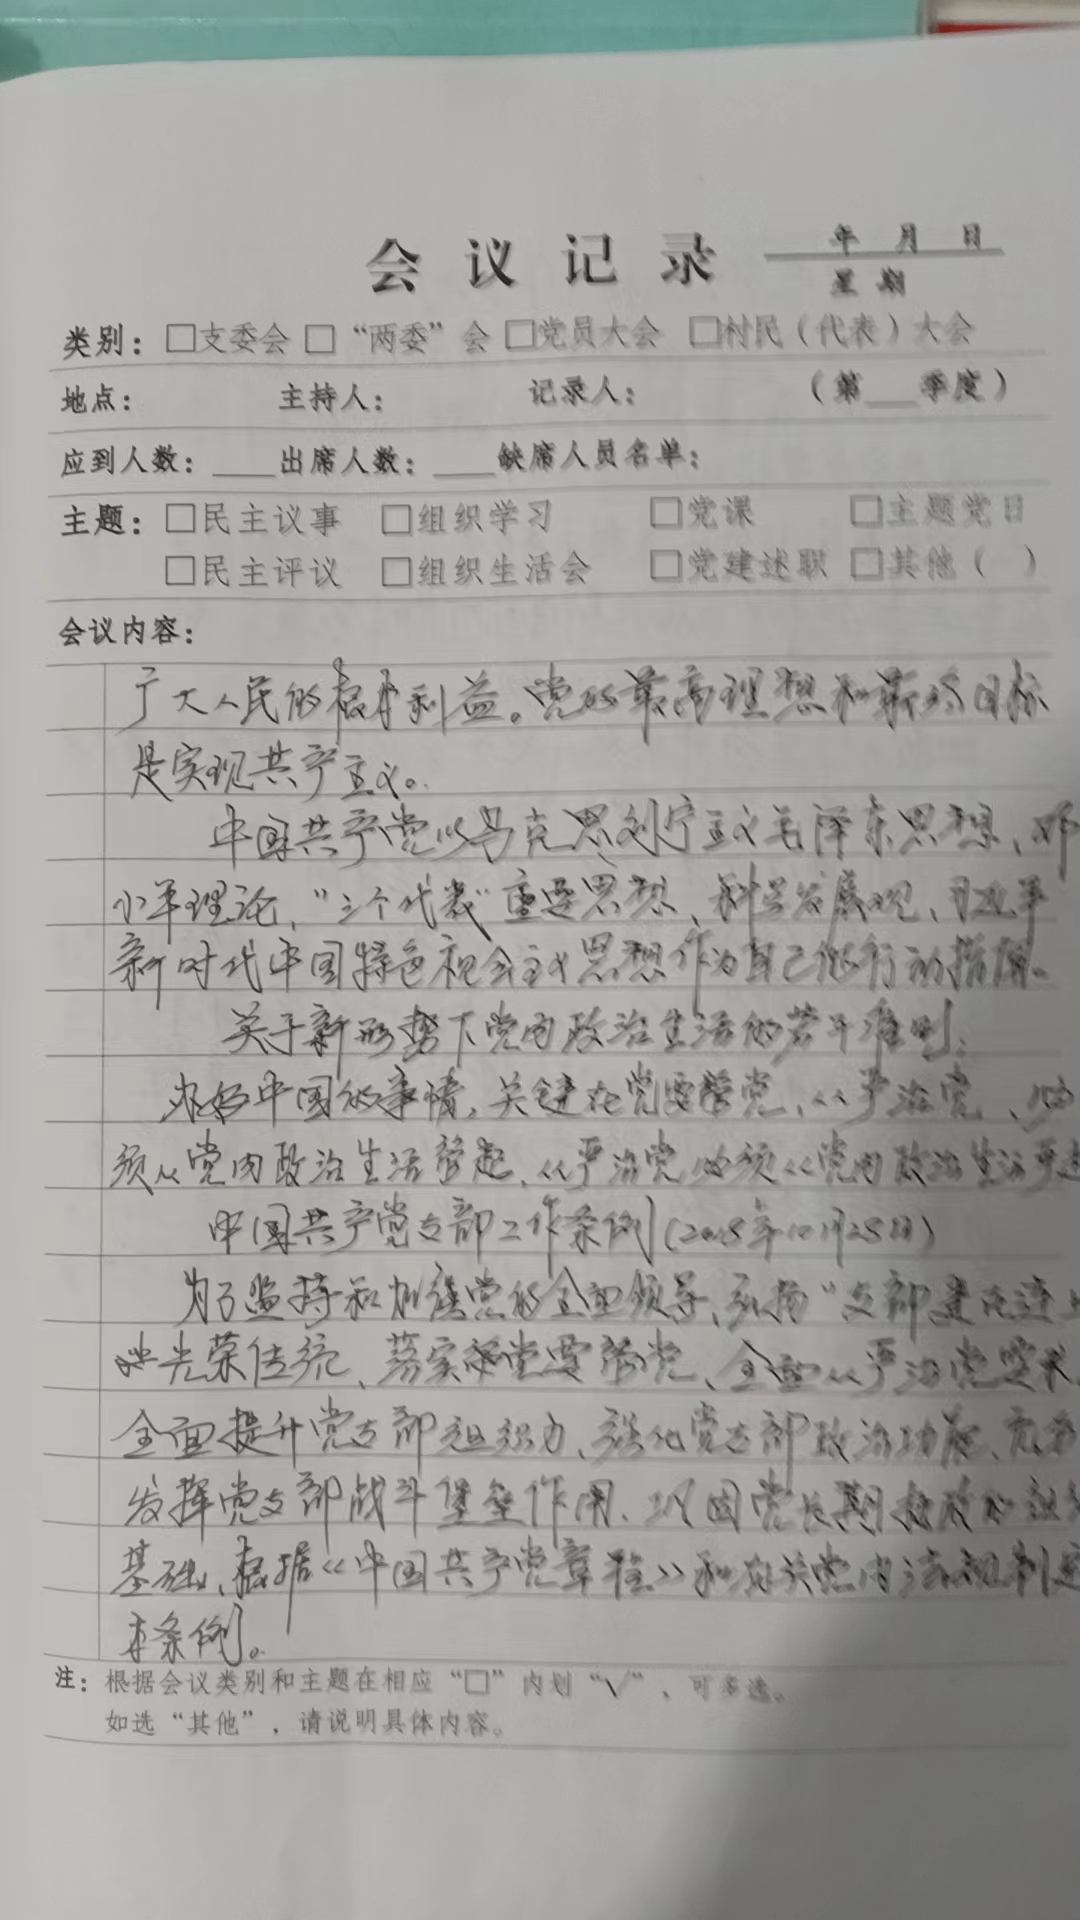 会议记录
年 月 日
星期
类别：□支委会 □“两委”会 □党员大会 □村民（代表）大会
地点： 主持人： 记录人： （第___季度）
应到人数：____出席人数：____缺席人员名单：
主题：□民主议事 □组织学习 □党课 □主题党日
□民主评议 □组织生活会 □党建述职 □其他（ ）
会议内容：
广大人民的根本利益。党的最高理想和最终目标
是实现共产主义。
中国共产党以马克思列宁主义毛泽东思想、邓
小平理论、“三个代表”重要思想、科学发展观、习近平
新时代中国特色社会主义思想作为自己的行动指南。
关于新形势下党内政治生活的若干准则：
办好中国的事情，关键在党要管党、从严治党、必
须从党内政治生活管起、从严治党必须从党内政治生活严起
中国共产党支部工作条例（2018年10月28日）
为了坚持和加强党的全面领导、弘扬“支部建在连上
光荣传统、落实党要管党、全面从严治党要求
全面提升党支部组织力、强化党支部政治功能、充分
发挥党支部战斗堡垒作用、巩固党长期执政的组织
基础、根据《中国共产党章程》和有关党内法规制定
本条例。
注：根据会议类别和主题在相应“□”内划“√”，可多选。
如选“其他”，请说明具体内容。